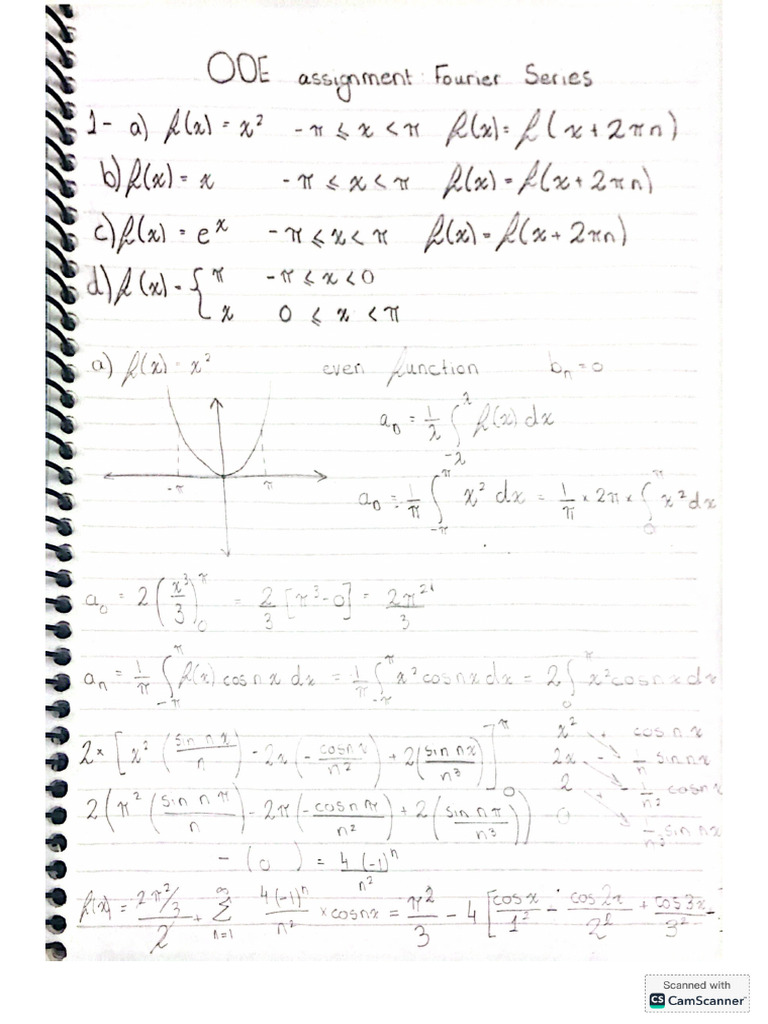 ODE assignment Fourier Series
1- a) f(x) = x² -π ≤ x < π f(x) = f(x + 2πn)
b) f(x) = x -π ≤ x < π f(x) = f(x + 2πn)
c) f(x) = e^x -π ≤ x < π f(x) = f(x + 2πn)
d) f(x) = { π -π ≤ x < 0
x 0 ≤ x < π
a) f(x) = x² even function bₙ = 0
a₀ = 1/λ ∫_{-λ}^{λ} f(x) dx
-π π
a₀ = 1/π ∫_{-π}^{π} x² dx = 1/π × 2π × ∫_0^π x² dx
a₀ = 2 (x³/3)_0^π = 2/3 [π³ - 0] = 2π²/3
aₙ = 1/π ∫_{-π}^{π} f(x) cos nx dx = 1/π ∫_{-π}^{π} x² cos nx dx = 2 ∫_0^π x² cos nx dx
2 * [x² (sin nx / n) - 2x (-cos nx / n²) + 2 (sin nx / n³)]_0^π
x² . cos nx
2x - 1/n sin nx
2 + -1/n² cos nx
0 1/n³ sin nx
2 (π² (sin nπ / n) - 2π (-cos nπ / n²) + 2 (sin nπ / n³))
- (0) = 4(-1)ⁿ / n²
f(x) = (2π²/3) / 2 + Σ_{n=1}^{∞} 4(-1)ⁿ / n² × cos nx = π²/3 - 4 [cos x / 1² - cos 2x / 2² + cos 3x / 3² -
Scanned with
CS CamScanner